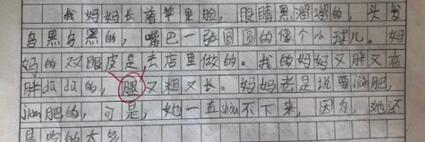 我妈妈长着苹果脸，眼睛黑溜溜的，头发
乌黑乌黑的，嘴巴一张圆圆的像个小球儿。妈
妈的双眼皮是去店里做的。我的妈妈又胖又高
胖dūdū的，腿又粗又长。妈妈老是说要减肥，
jiǎn肥的，可是，她一直shòu不下来，因为，她还
是吃的太多